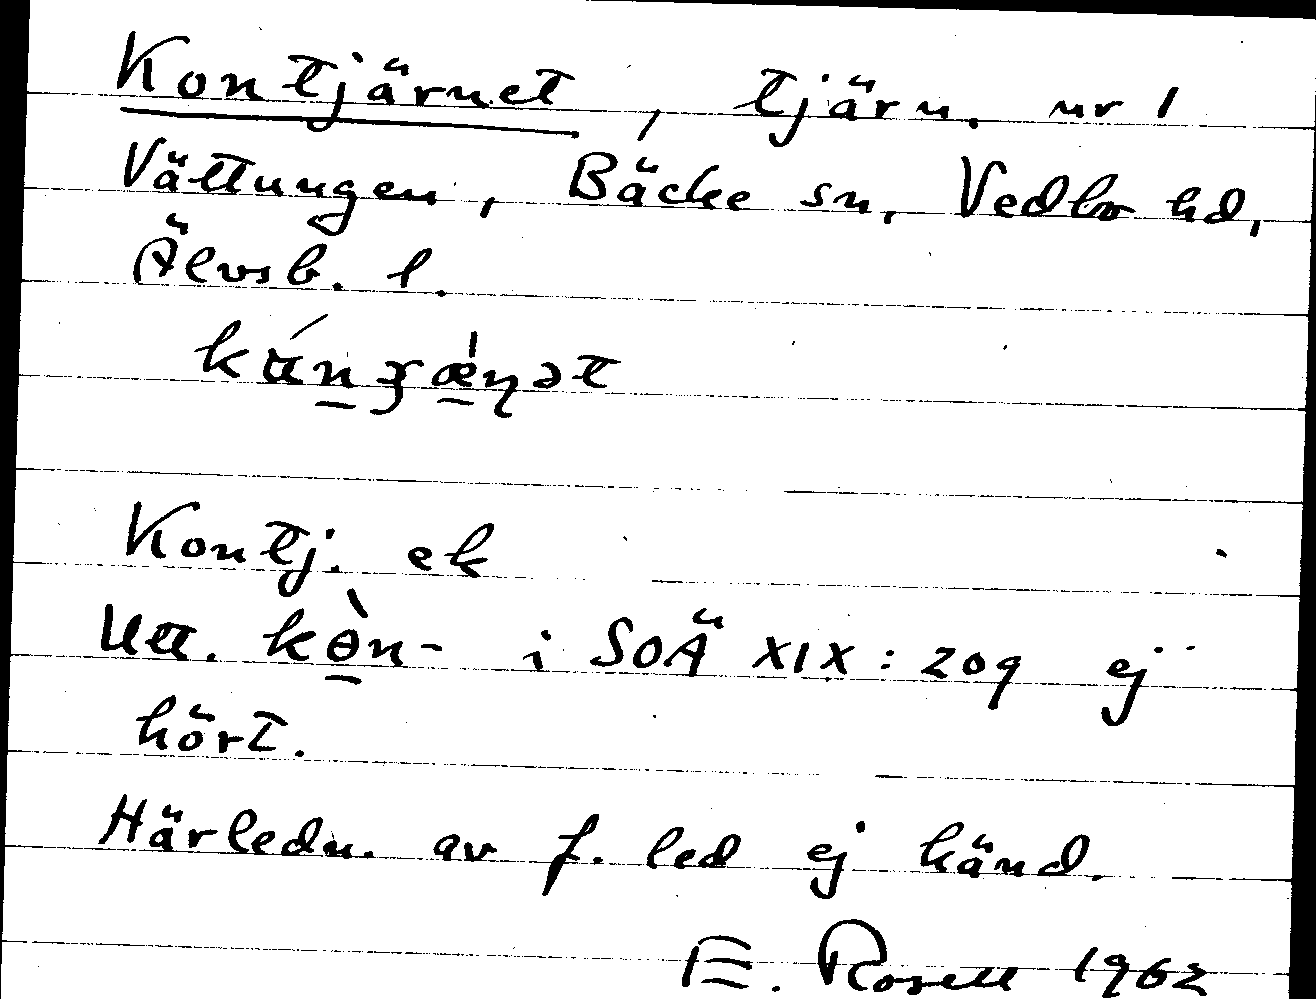 Kontjärnet, tjärn, nr 1
Vättungen, Bäcke sn, Vedbo hd,
Älvsb. l.
Kontj. ek
Utt. kɵ̀n- i SOÄ XIX: 209 ej
hört.
Härledn. av f. led ej känd.
E. Rosell 1962